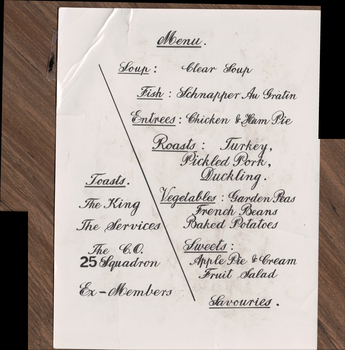 Menu.
Soup: Clear Soup
Fish: Schnapper Au Gratin
Entrees: Chicken & Ham Pie
Roasts: Turkey,
Pickled Pork,
Duckling.
Vegetables: Garden Peas
French Beans
Baked Potatoes
Sweets:
Apple Pie & Cream
Fruit Salad
Savouries.
Toasts.
The King
The Services
The C.O.
25 Squadron
Ex-Members